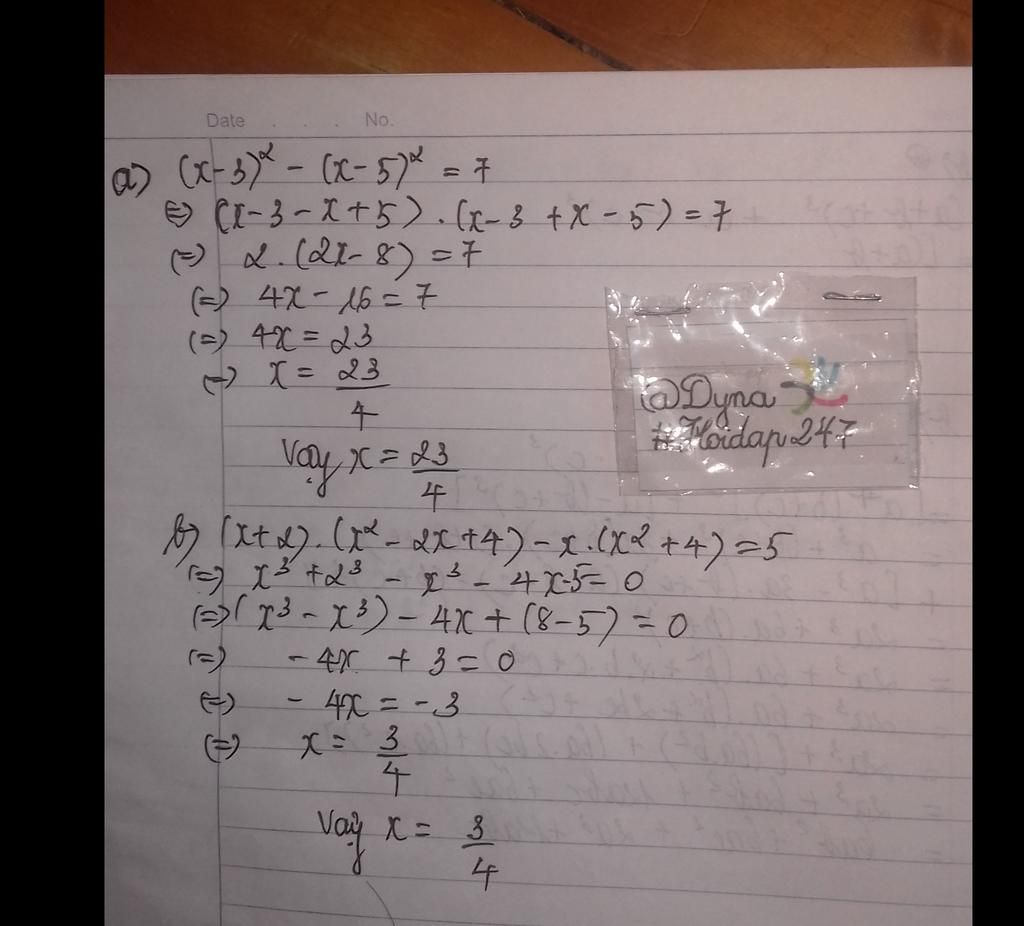 Date . . . No.
a) (x-3)² - (x-5)² = 7
⇔ (x-3-x+5).(x-3+x-5) = 7
(=) 2.(2x-8) = 7
(=) 4x - 16 = 7
(=) 4x = 23
(=) x = 23/4
Vậy x = 23/4
@Dyna
#Hoidap247
b) (x+2).(x² - 2x+4) - x.(x²+4) = 5
(=) x³ + 2³ - x³ - 4x-5 = 0
(=) (x³ - x³) - 4x + (8-5) = 0
(=) - 4x + 3 = 0
(=) - 4x = -3
(=) x = 3/4
Vậy x = 3/4